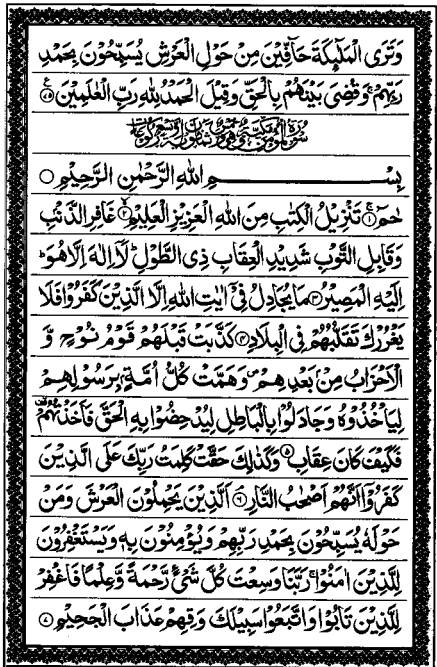 وَتَرَى الْمَلٰٓئِكَةَ حَآفِّيْنَ مِنْ حَوْلِ الْعَرْشِ يُسَبِّحُوْنَ بِحَمْدِ
رَبِّهِمْ ۚ وَقُضِيَ بَيْنَهُمْ بِالْحَقِّ وَقِيْلَ الْحَمْدُ لِلّٰهِ رَبِّ الْعٰلَمِيْنَ ۝٧٥
بِسْمِ اللّٰهِ الرَّحْمٰنِ الرَّحِيْمِ ۝
حٰمٓ ۝١ۚ تَنْزِيْلُ الْكِتٰبِ مِنَ اللّٰهِ الْعَزِيْزِ الْعَلِيْمِ ۝٢ۙ غَافِرِ الذَّنْۢبِ
وَقَابِلِ التَّوْبِ شَدِيْدِ الْعِقَابِ ذِى الطَّوْلِ ؕ لَآ اِلٰهَ اِلَّا هُوَ ؕ
اِلَيْهِ الْمَصِيْرُ ۝٣ مَا يُجَادِلُ فِيْٓ اٰيٰتِ اللّٰهِ اِلَّا الَّذِيْنَ كَفَرُوْا فَلَا
يَغْرُرْكَ تَقَلُّبُهُمْ فِى الْبِلَادِ ۝٤ كَذَّبَتْ قَبْلَهُمْ قَوْمُ نُوْحٍ وَّ
الْاَحْزَابُ مِنْۢ بَعْدِهِمْ ۪ وَهَمَّتْ كُلُّ اُمَّةٍۢ بِرَسُوْلِهِمْ
لِيَاْخُذُوْهُ وَجَادَلُوْا بِالْبَاطِلِ لِيُدْحِضُوْا بِهِ الْحَقَّ فَاَخَذْتُهُمْ
فَكَيْفَ كَانَ عِقَابِ ۝٥ وَكَذٰلِكَ حَقَّتْ كَلِمَتُ رَبِّكَ عَلَى الَّذِيْنَ
كَفَرُوْٓا اَنَّهُمْ اَصْحٰبُ النَّارِ ۝٦ اَلَّذِيْنَ يَحْمِلُوْنَ الْعَرْشَ وَمَنْ
حَوْلَهٗ يُسَبِّحُوْنَ بِحَمْدِ رَبِّهِمْ وَيُؤْمِنُوْنَ بِهٖ وَيَسْتَغْفِرُوْنَ
لِلَّذِيْنَ اٰمَنُوْا ۚ رَبَّنَا وَسِعْتَ كُلَّ شَيْءٍ رَّحْمَةً وَّعِلْمًا فَاغْفِرْ
لِلَّذِيْنَ تَابُوْا وَاتَّبَعُوْا سَبِيْلَكَ وَقِهِمْ عَذَابَ الْجَحِيْمِ ۝٧